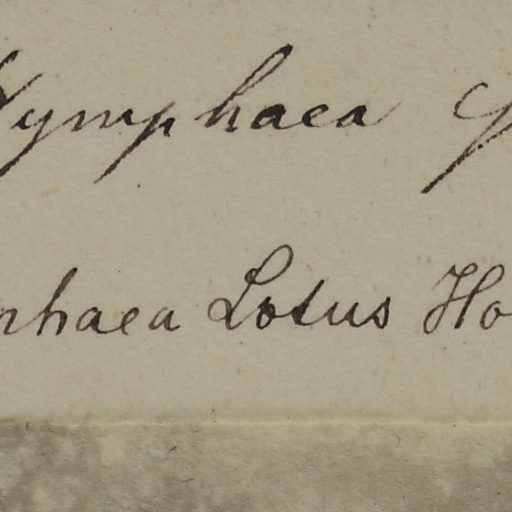 Nymphaea
phaea Lotus Ho